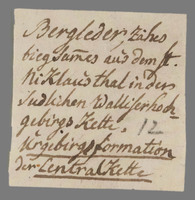 Bergleder, zähes
biegsames aus dem St.
Niklausthal in der
südlichen Walliserhoch-
gebirgs Kette. 12
Urgebirgsformation
der Central Kette